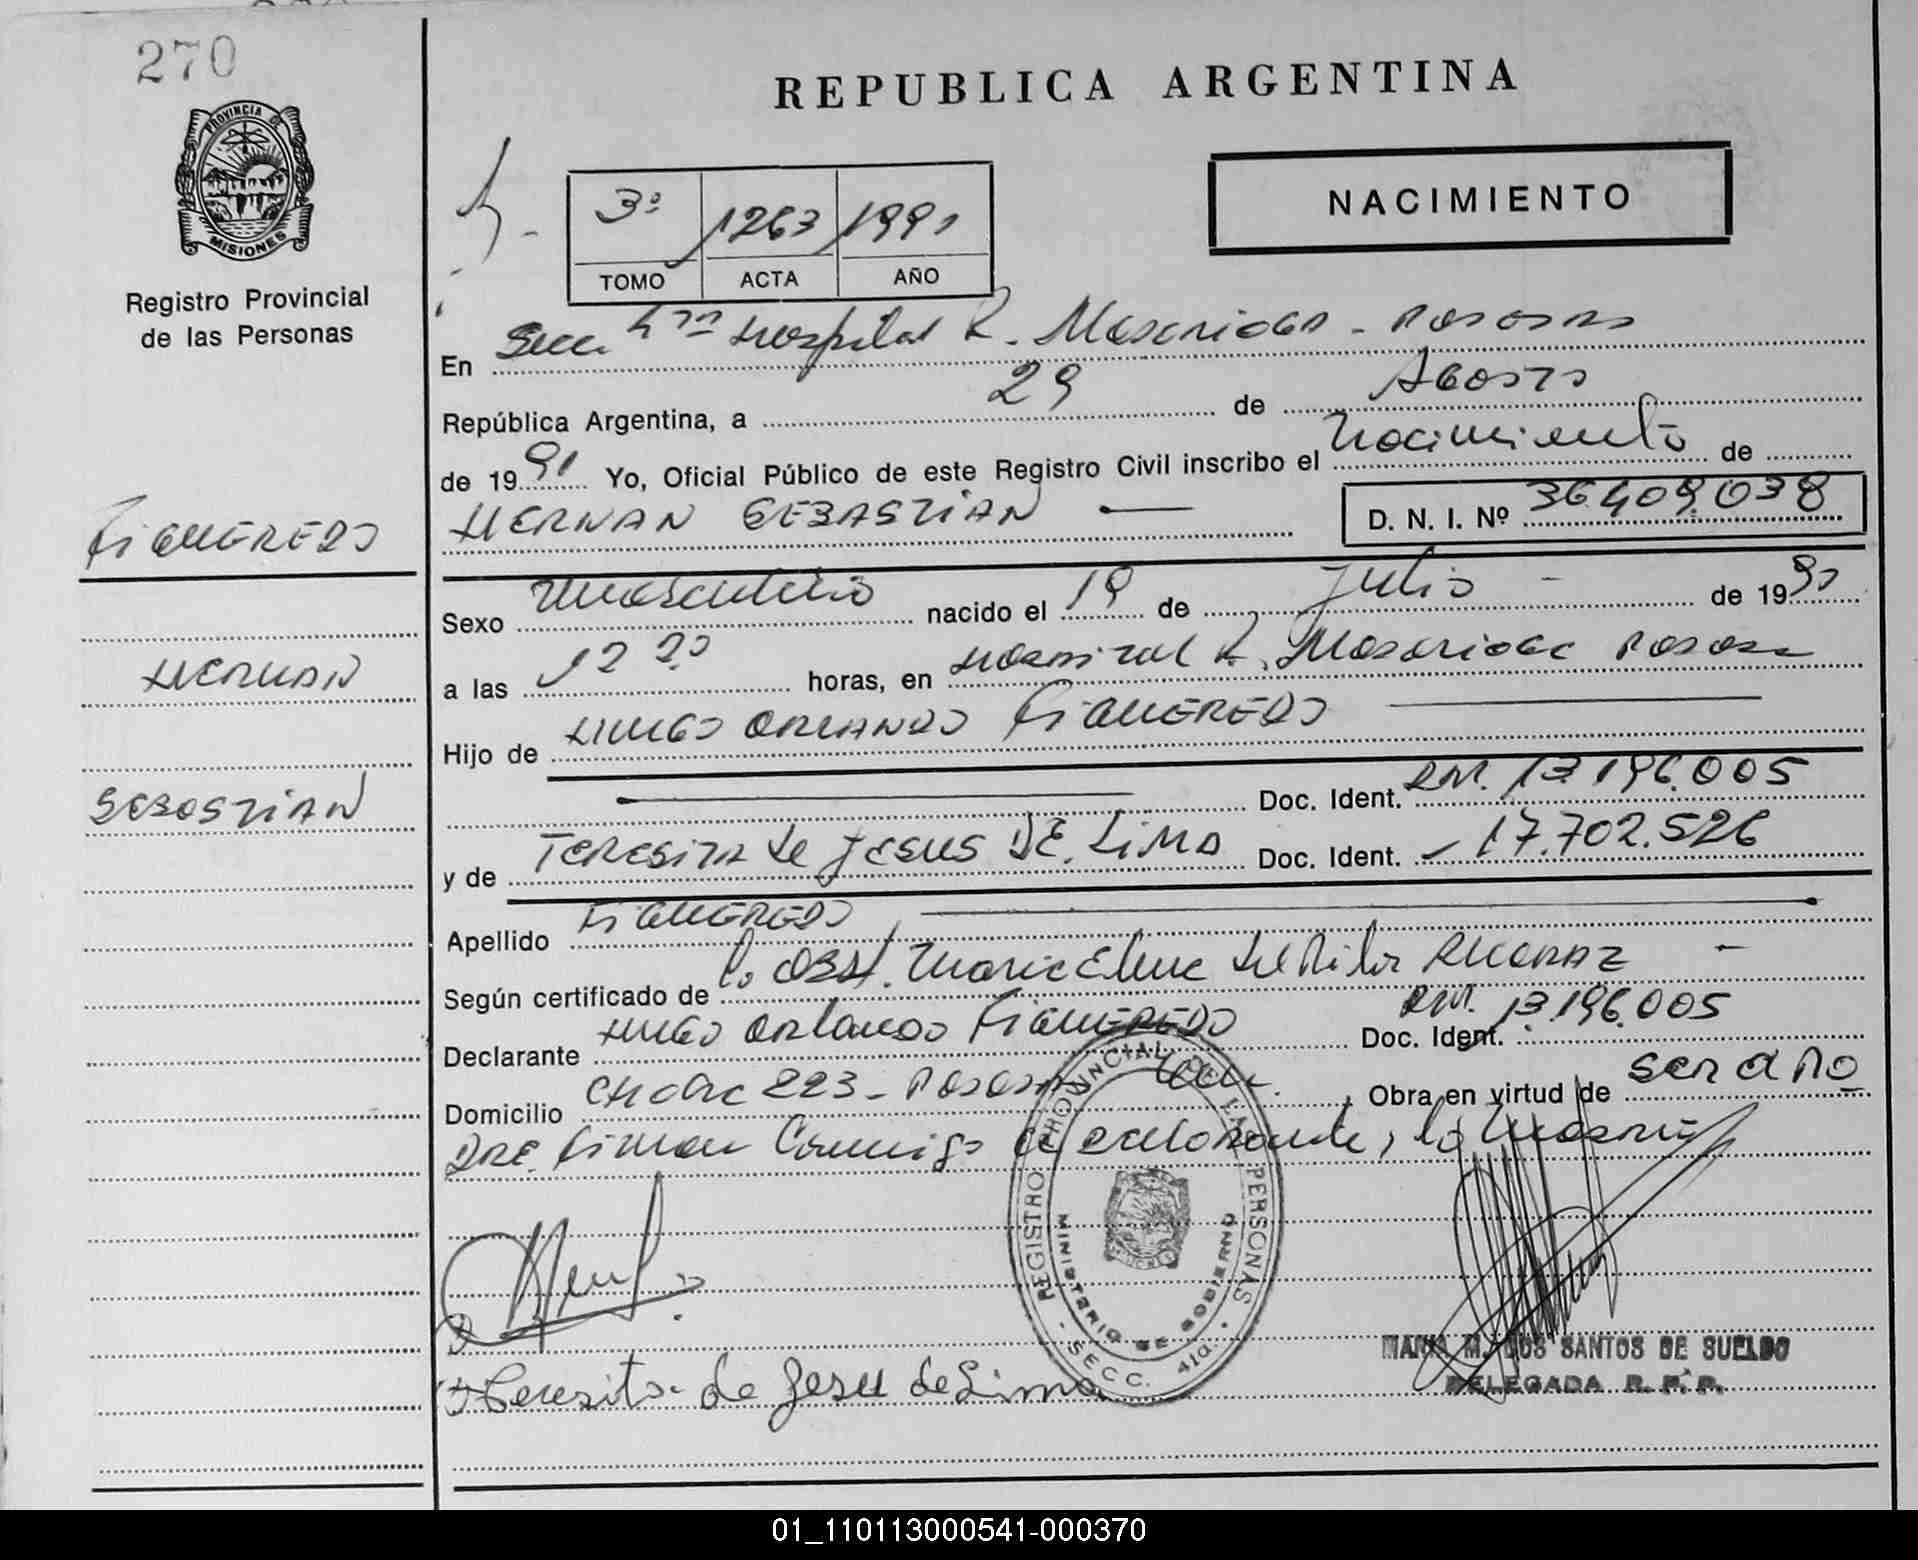 270
REPUBLICA ARGENTINA
PROVINCIA DE
MISIONES
Registro Provincial
de las Personas
NACIMIENTO
3º 1263 1991
TOMO ACTA AÑO
En Secc. 4ta Hospital R. Madariaga - Posadas
República Argentina, a 29 de Agosto
de 1991 Yo, Oficial Público de este Registro Civil inscribo el Nacimiento de
HERNAN SEBASTIAN D. N. I. Nº 36.409.038
FIGUEREDO
HERNAN
SEBASTIAN
Sexo Masculino nacido el 19 de Julio de 1991
a las 12 20 horas, en Hospital R. Madariaga Posadas
Hijo de HUGO ORLANDO FIGUEREDO
Doc. Ident. DNI. 13.196.005
y de TERESITA de JESUS DE LIMA Doc. Ident. 17.702.526
Apellido FIGUEREDO
Según certificado de la Obst. Maria Elena del Pilar Alcaraz
Declarante Hugo Orlando FIGUEREDO Doc. Ident. DNI. 13.196.005
Domicilio 223 - Posadas Obra en virtud de ser el pa
dre. Firman Conmigo el declarante, la
REGISTRO PROVINCIAL DE LAS PERSONAS
MINISTERIO DE GOBIERNO
SECC. 4ta.
MARIA M. DOS SANTOS DE SUELDO
DELEGADA R. P. P.
Teresita de Jesu de Lima
01_110113000541-000370